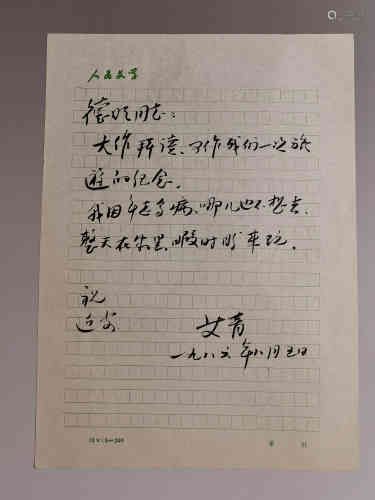 人民文学
德明同志：
大作拜读、可作我们一次旅
游的纪念。
我因年老多病、哪儿也不想去、
整天在家里、暇时盼来玩。
祝
近安
艾青
一九八六年八月五日